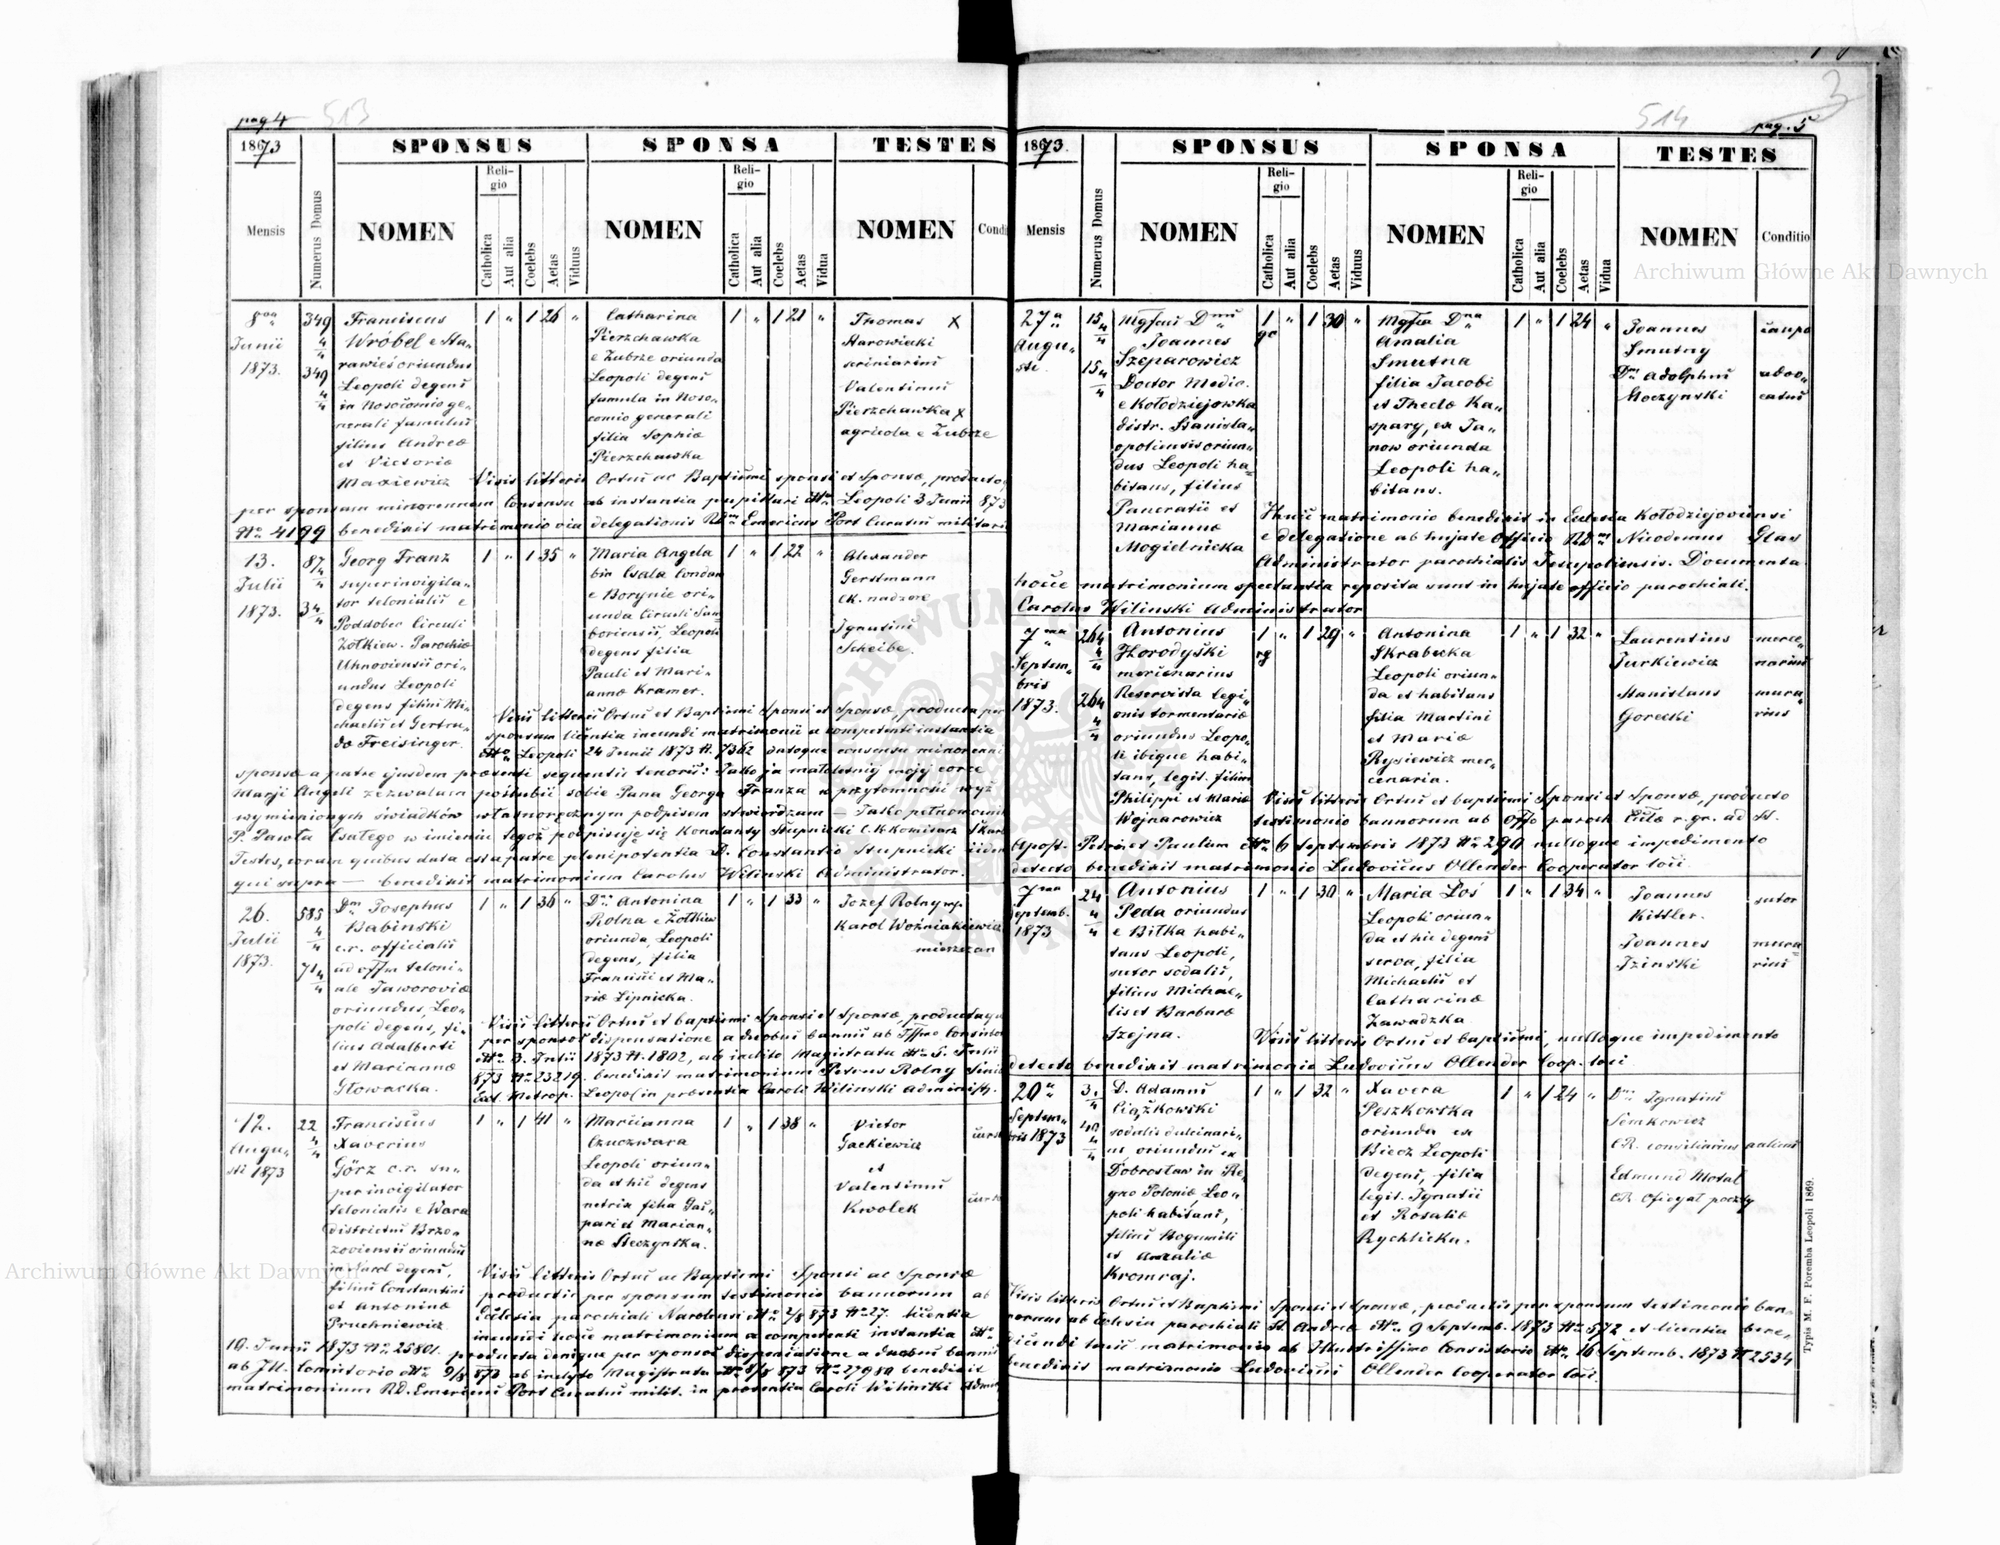 pag 4
513
1873
SPONSUS
SPONSA
TESTES
Mensis
Numerus Domus
NOMEN
Religio
Catholica
Aut alia
Coelebs
Aetas
Viduus
NOMEN
Religio
Catholica
Aut alia
Coelebs
Aetas
Vidua
NOMEN
Condi
Junii
1873.
349
349
Franciscus
Wróbel e Sta„
rawieś oriundus
Leopoli degens
in Nosocomio ge„
nerali famulus
filius Andreæ
et Victoriæ
Maziewicz
1 „ 1 26 „
Catharina
Pierzchawka
e Zubrze oriunda
Leopoli degens
famula in Noso„
comio generali
filia Sophiæ
Pierzchawka
1 „ 1 21 „
Thomas X
Starowiecki
scriniarius
Valentinus
Pierzchawka X
agricola e Zubrze
Visis litteris Ortus ac Baptismi sponsi et Sponsæ, producto
per sponsam minorennem Consensu ab instantia pupillari Leopoli 3 Junii 873
No 4199 benedixit matrimonio via delegationis Emericus Port Curatus militaris
13.
Julii
1873.
87
34
Georg Franz
superinvigila„
tor telonialis e
Poddobec Circuli
Żółkiew. Parochiæ
Uhnoviensis ori„
undus Leopoli
degens filius Mi„
chaelis et Gertru„
dæ Freisinger.
1 „ 1 35 „
Maria Angela
bin Csala London
e Borynie ori„
unda Circuli Sam
boriensis, Leopoli
degens filia
Pauli et Mari„
annæ Kramer.
1 „ 1 22 „
Alexander
Gerstmann
ck. nadzorc
Ignatius
Scheibe.
Visis litteris Ortus et Baptismi Sponsi et Sponsæ, producta per
sponsum licentia ineundi matrimonii a competenti instantia
Leopoli 24 Junii 1873 N. 7362 consensu minorenni
sponsæ a patre ejusdem præsenti sequentis tenoris: Jako ja małoletniej mojej córce
Marji Angeli zezwalam poślubić sobie Pana Georga Franza w przytomności wyż
wymienionych świadków własnoręcznym podpisem stwierdzam — Jako pełnomocnik
P. Pawła Csalego w imieniu tegoż podpisuję się Konstanty Stupnicki C.K. Komisarz Skarb
Testes, coram quibus data est a patre plenipotentia D. Constantio Stupnicki iidem
qui supra — benedixit matrimonium Carolus Wilinski Administrator.
26.
Julii
1873.
585
714
Dnus Josephus
Babinski
c.r. officialis
ad offm teloni„
ale Jaworoviæ
oriundus, Leo„
poli degens, fi„
lius Adalberti
et Mariannæ
Głowacka.
1 „ 1 36 „
Dna Antonina
Rolna e Żółkiew
oriunda, Leopoli
degens, filia
Francisci et Ma„
riæ Lipnicka.
1 „ 1 33 „
Jozef Rolny mp.
Karol Woźniakiewicz
mieszczan
Visis litteris Ortus et baptismi Sponsi et Sponsæ, producta
per sponsos dispensatione a duobus bannis ab Consisto
3. Julii 1873 N. 1802, ab inclito Magistratu 5. Julii
873 N. 23219. benedixit matrimonium Petrus Rolny
Metrop. Leopol. in præsentia Caroli Wilinski administr.
12.
Augu„
sti 1873
22
Franciscus
Xaverius
Görz c.r. su„
perinvigilator
telonialis e Wara
districtus Brzo„
zoviensis oriundus
in Narol degens,
filius Constantini
et Antoninæ
Pruchniewicz
1 „ 1 41 „
Mariianna
Czuczwara
Leopoli oriun„
da et hic degens
netrix filia Gas„
pari et Marian„
næ Steczyńska.
1 „ 1 38 „
Victor
Gackiewicz
et
Valentinus
Kwolek
Visis litteris Ortus ac Baptismi Sponsi ac Sponsæ
productis per sponsum testimonio bannorum ab
Ecclesia parochiali Narolensi 2/8 873 N. 27. licentia
ineundi hocce matrimonium a competenti instantia
10. Junii 1873 N. 25801. producta denique per sponsos dispensatione a duobus bannis
ab Consistorio 9/8 873 ab inclyto Magistratu 8/8 873 N. 27980 benedixit
matrimonium RD. Emericus Port Curatus milit. in præsentia Caroli Wilinski
514
3
pag. 5
1873.
SPONSUS
SPONSA
TESTES
Mensis
Numerus Domus
NOMEN
Religio
Catholica
Aut alia
Coelebs
Aetas
Viduus
NOMEN
Religio
Catholica
Aut alia
Coelebs
Aetas
Vidua
NOMEN
Conditio
27a
Augu„
sti.
15
15
Joannes
Szeparowicz
Doctor Medic.
e Kołodziejowka
distr. Stanisla„
opoliensis oriun„
dus Leopoli ha„
bitans, filius
Pancratii et
Mariannæ
Mogielnicka
1 „ 1 30 „
gc
Amalia
Smutna
filia Jacobi
et Theclæ Ka„
spary, ex Ja„
now oriunda
Leopoli ha„
bitans.
1 „ 1 24 „
Joannes
Smutny
Dnus Adolphus
Moczynski
caupo
advo„
catus
Huic matrimonio benedixit in Ecclesia Kołodziejoviensi
e delegatione ab hujate Officio Nicodemus Glas
Administrator parochialis Jezupoliensis. Documenta
hocce matrimonium spectantia reposita sunt in hujate officio parochiali.
Carolus Wilinski Administrator
7ma
Septem„
bris
1873.
264
264
Antonius
Horodyski
mercenarius
Reservista Legi„
onis tormentariæ
oriundus Leopo„
li ibique habi„
tans, legit. filius
Philippi et Mariæ
Wojnarowicz
1 „ 1 29 „
rg
Antonina
Skrabecka
Leopoli oriun„
da et habitans
filia Martini
et Mariæ
Rysiewicz mer„
cenaria.
1 „ 1 32 „
Laurentius
Jurkiewicz
Stanislaus
Gorecki
merce„
narius
mura„
rius
Visis litteris Ortus et baptismi Sponsi et Sponsæ, producto
testimonio bannorum ab Offo paroch. Eccliæ r. gr. ad SS.
Apost. Petrum et Paulum 6 Septembris 1873 No 290 nulloque impedimento
detecto benedixit matrimonio Ludovicus Ollender Cooperator loci.
7ma
Septemb.
1873
24
Antonius
Peda oriundus
e Bilka habi„
tans Leopoli,
sutor sodalis,
filius Michae„
lis et Barbaræ
Szejna.
1 „ 1 30 „
Maria Łoś
Leopoli oriun„
da et hic degens
serva, filia
Michaelis et
Catharinæ
Zawadzka.
1 „ 1 34 „
Joannes
Kittler.
Joannes
Izinski
sutor
mura„
rius
Visis litteris Ortus et baptismi, nulloque impedimento
detecto benedixit matrimonio Ludovicus Ollender Coop. loci
20a
Septem„
bris 1873
3.
40
D. Adamus
Ciążkowski
sodalis dulcinari„
us oriundus ex
Dobrostaw in Re„
gno Poloniæ Leo„
poli habitans,
filius Bogumili
et Amaliæ
Kromraj.
1 „ 1 32 „
Xavera
Peszkowska
oriunda ex
Biecz Leopoli
degens, filia
legit. Ignatii
et Rosaliæ
Rychlicka.
1 „ 1 24 „
Dnus Ignatius
Semkowicz
CR. consiliarius
Edmund Motal
CR Oficyał poczty
Visis litteris Ortus et Baptismi Sponsi et Sponsæ, productis per sponsum testimonio ban„
norum ab Eclesia parochiali St. Andreæ 9 Septemb. 1873 No 572 et licentia bene„
dicendi huic matrimonio ab Illustrissimo Consistorio 16 Septemb. 1873 N 2534
benedixit matrimonio Ludovicus Ollender Cooperator loci.
Typis M. F. Poremba Leopoli 1869.
Archiwum Główne Akt Dawnych
Archiwum Główne Akt Dawnych